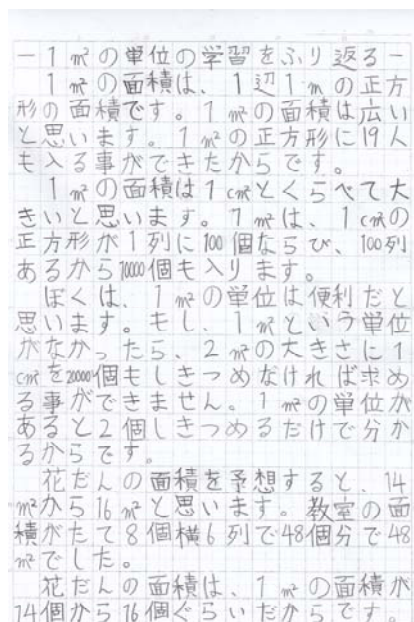 －１㎡の単位の学習をふり返る－
１㎡の面積は、１辺１ｍの正方
形の面積です。１㎡の面積は広い
と思います。１㎡の正方形に19人
も入る事ができたからです。
１㎡の面積は１㎠とくらべて大
きいと思います。１㎡は、１㎠の
正方形が１列に100個ならび、100列
あるから10000個も入ります。
ぼくは、１㎡の単位は便利だと
思います。もし、１㎡という単位
がなかったら、２㎡の大きさに１
㎠を20000個もしきつめなければ求め
る事ができません。１㎡の単位が
あると２個しきつめるだけで分か
るからです。
花だんの面積を予想すると、14
㎡から16㎡と思います。教室の面
積がたて８個横６列で48個分で48
㎡でした。
花だんの面積は、１㎡の面積が
14個から16個ぐらいだからです。